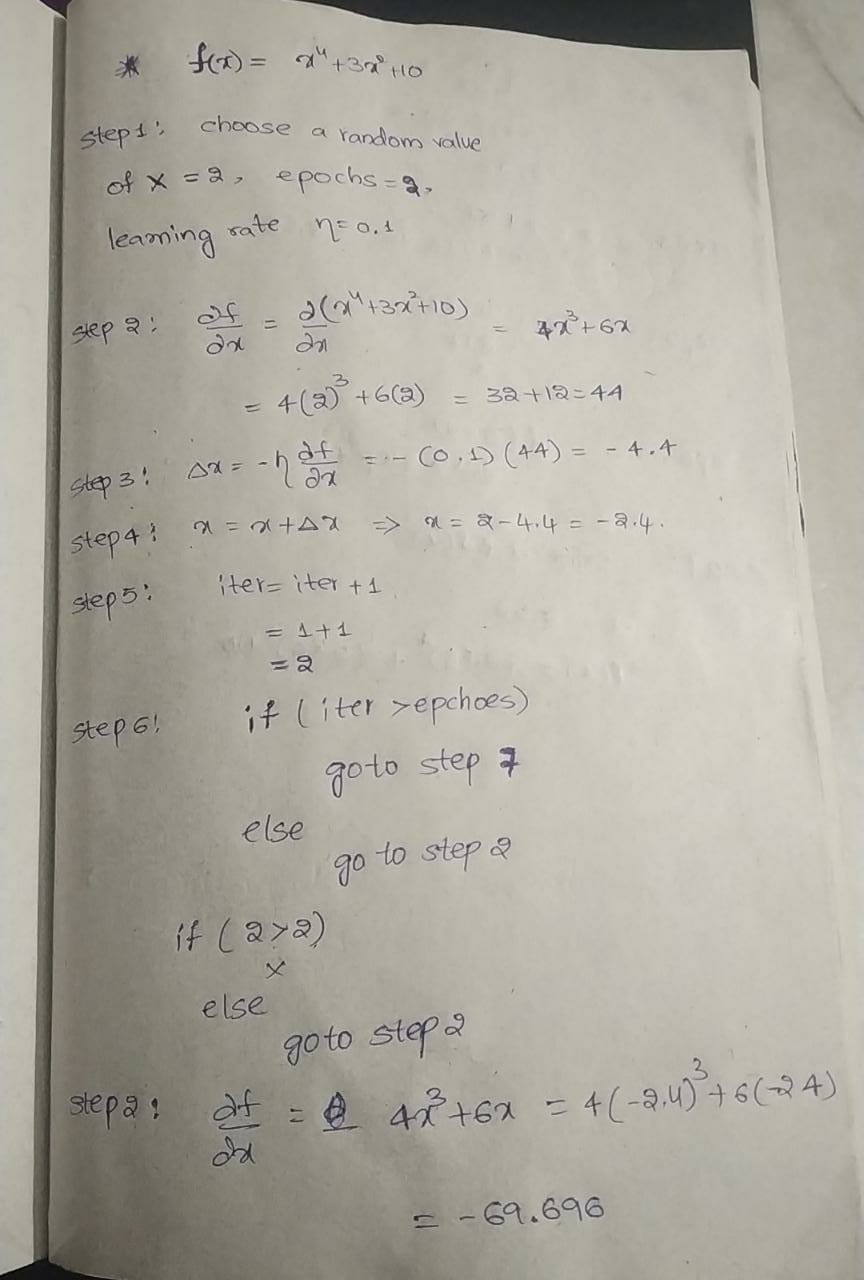 * f(x) = x⁴+3x²+10
step1: choose a random value
of x = 2, epochs = 2,
learning rate η=0.1
step 2: ∂f/∂x = ∂(x⁴+3x²+10)/∂x = 4x³+6x
= 4(2)³+6(2) = 32+12=44
step 3: Δx = -η ∂f/∂x = -(0.1)(44) = -4.4
step4: x = x+Δx ⇒ x = 2-4.4 = -2.4.
step5: iter= iter +1
= 1+1
= 2
step 6! if (iter >epchoes)
goto step 7
else
go to step 2
if (2>2)
x
else
goto step 2
step2: ∂f/∂x = 4x³+6x = 4(-2.4)³+6(-2 4)
= -69.696